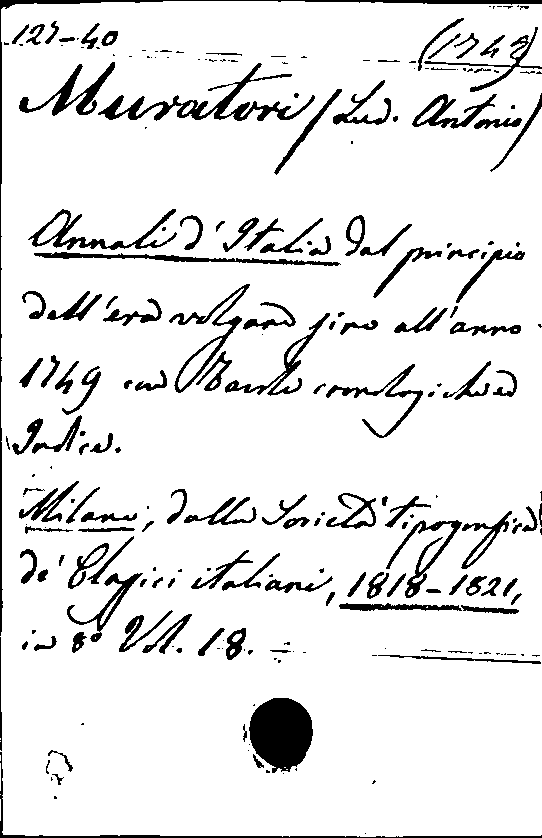 127-40 (1742)
Muratori (Lud. Antonio)
Annali d'Italia dal principio
dell'era volgare sino all'anno
1749 con Tavole cronologiche ed
Indice.
Milano, dalla Società tipografica
de' Classici italiani, 1818-1821,
in 8° Vol. 18.